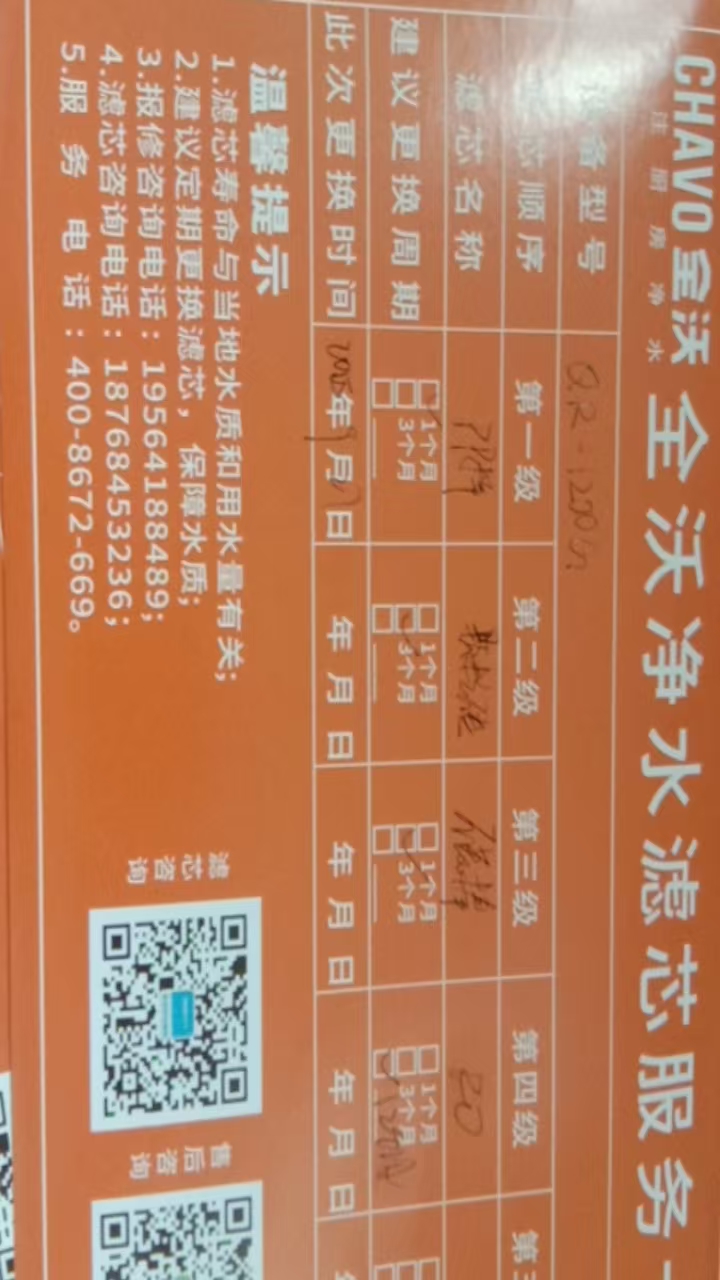 CHAVO全沃
注厨房净水
全沃净水滤芯服务
设备型号 QR-1200G
滤芯顺序 第一级 第二级 第三级 第四级 第
滤芯名称 RO
建议更换周期 □1个月 □3个月 □____ □1个月 □3个月 □____ □1个月 □3个月 □____ □1个月 □3个月 □
此次更换时间 年 月 日 年 月 日 年 月 日 年 月 日
温馨提示
1.滤芯寿命与当地水质和用水量有关;
2.建议定期更换滤芯，保障水质;
3.报修咨询电话：19564188489;
4.滤芯咨询电话：18768453236;
5.服务电话：400-8672-669。
滤芯咨询
售后咨询